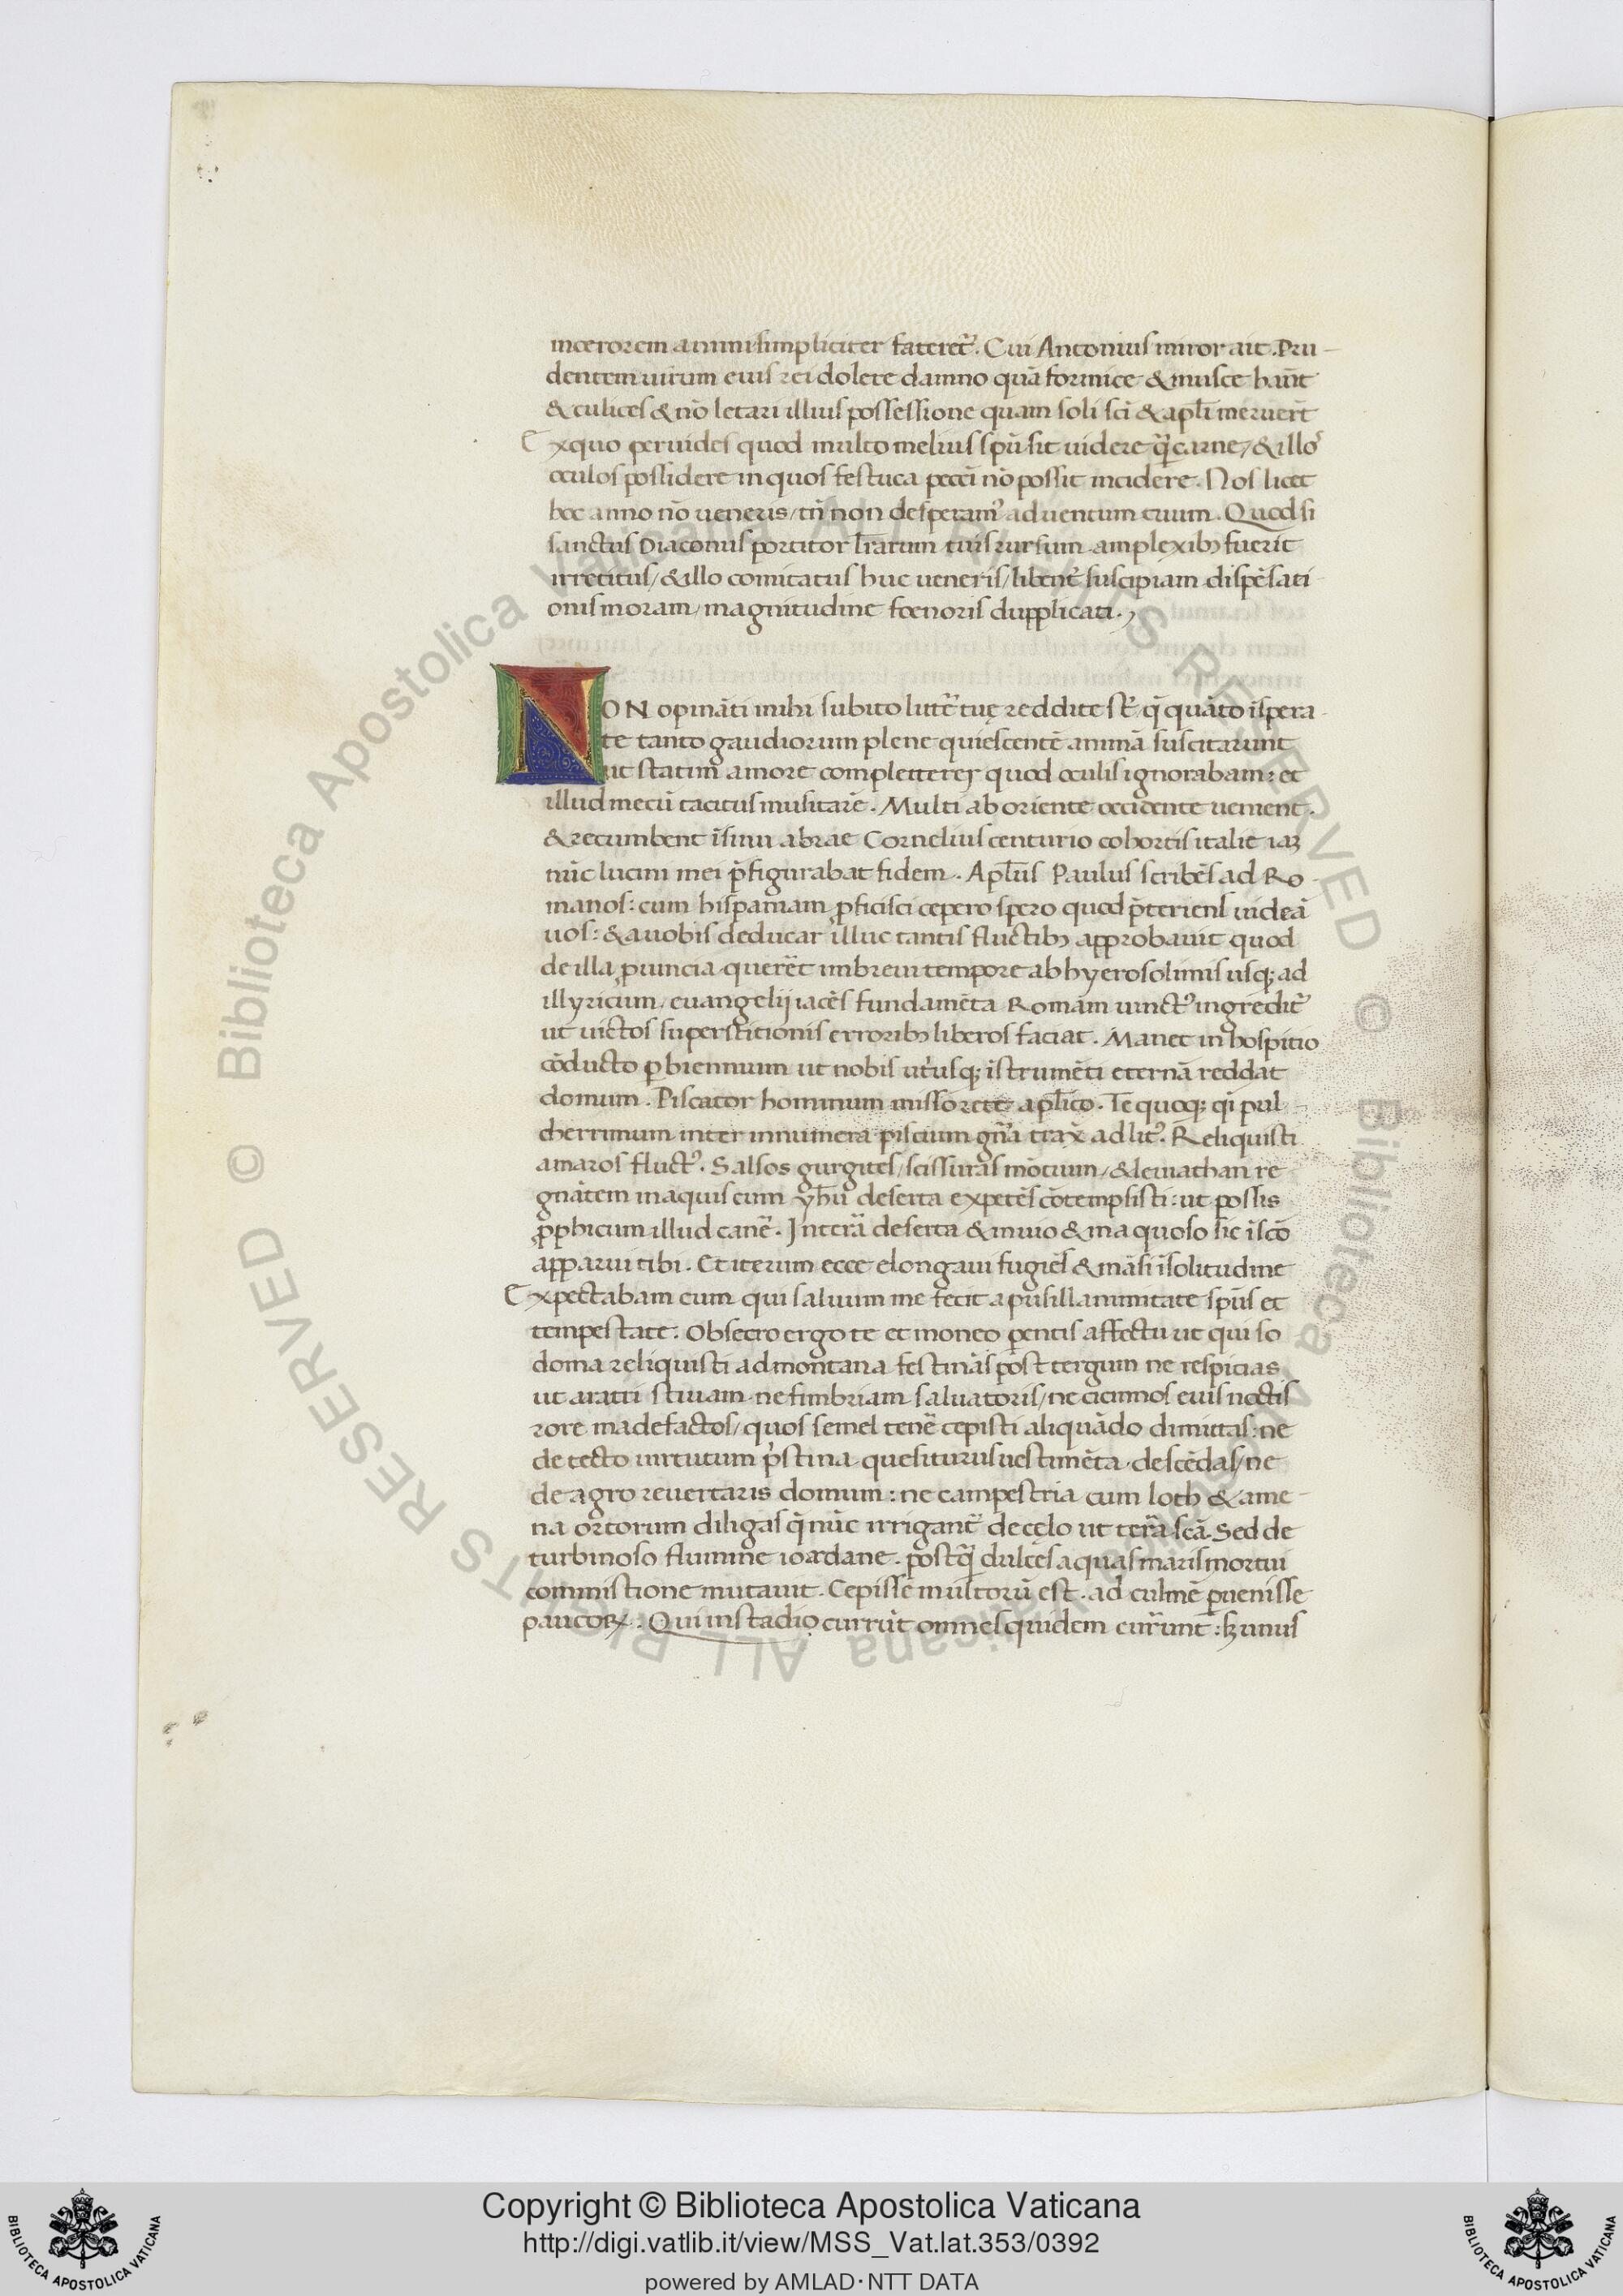 mœrorem animi simpliciter fateret᷑. Cui Antonius miror ait. Pru-
dentem uirum eius rei dolere damno quā formice & musce hān̄t
& culices & nō letari illius possessione quam soli sci̅ & apl̅i meruer̄t
Exquo peruides quod multo melius spū sit uidere q̃ carne, & illoˢ
oculos possidere in quos festuca pecci̅ nō possit incidere. Nos licet
hoc anno nō ueneris / tn̄ non desperamꝰ aduentum tuum. Quod si
sanctus Diaconus portitor lr̅arum tuis rursum amplexibꝫ fuerit
irretitus / & illo comitatus huc ueneris / libent᷑ suscipiam dispēsati
onis moram / magnitudine fœnoris dupplicati.,
NON opināti mihi subito litt᷑e tuę reddite st᷑ q̄ quāto ispera-
te tanto gaudiorum plene quiescentē animā suscitarunt
ut statim amore completterer quod oculis ignorabam: et
illud mecū tacitus musitarē. Multi ab oriente occidente uenient.
& recumbent ī sinu abrae Cornelius centurio cohortis italie iaꝫ
nūc lucini mei p̄figurabat fidem. Apl̅us Paulus scribēs ad Ro-
manos: cum hispaniam ꝓficisci cepero spero quod p̄teriens uideā
uos: & auobis deducar illuc tantis fluctibꝫ approbauit quod
de illa ꝓuincia quer̄et inbreui tempore ab hyerosolimis usqꝫ ad
illyricum / euangelij iacēs fundamēta Romam uinctꝰ ingredit᷑
ut uictos superstitionis erroribꝫ liberos faciat. Manet in hospitio
cōducto ꝑ biennium ut nobis utriusqꝫ īstrumēti eternā reddat
domum. Piscator hominum misso rete apl̅ico. Te quoqꝫ q̄ pul-
cherrimum inter innumera piscium gn̄a trax̄ ad litꝰ. Reliquisti
amaros fluctꝰ. Salsos gurgites / scissuras mōtium / & leuiathan re
gnātem in aquis cum yh̅u deserta expetēs cōtempsisti: ut possis
ꝓphicum illud caner̄. In terr̄a deserta & inuio & inaquoso sic ī sc̅o
apparui tibi. Et iterum ecce elongaui fugiēs & māsi ī solitudine
Expectabam eum qui saluum me fecit a pusillanimitate spūs et
tempestate. Obsecro ergo te et moneo ꝑentis affectu ut qui so
doma reliquisti ad montana festinās post tergum ne respicias
ut aratri stiuam ne fimbriam saluatoris / ne cicinnos euis noctis
rore madefactos / quos semel tener̄ cepisti aliquādo dimittas: ne
de tecto uirtutum p̄stina quesiturus uestimēta descēdas / ne
de agro reuertaris domum: ne campestria cum loth & ame-
na ortorum diligas q̄ nūc irrigant᷑ de cęlo ut terr̄a scā. Sed de
turbinoso flumine iordane. postq̃ dulces aquas maris mortui
commistione mutauit. Cepisse multorū est. ad culmē ꝑuenisse
paucoꝝ. Qui in stadio currūt omnes quidem curr̄unt: sꝫ unus
Copyright © Biblioteca Apostolica Vaticana
http://digi.vatlib.it/view/MSS_Vat.lat.353/0392
powered by AMLAD·NTT DATA
BIBLIOTECA APOSTOLICA VATICANA
BIBLIOTECA APOSTOLICA VATICANA
© Biblioteca Apostolica Vaticana ALL RIGHTS RESERVED © Biblioteca Apostolica Vaticana ALL RIGHTS RESERVED